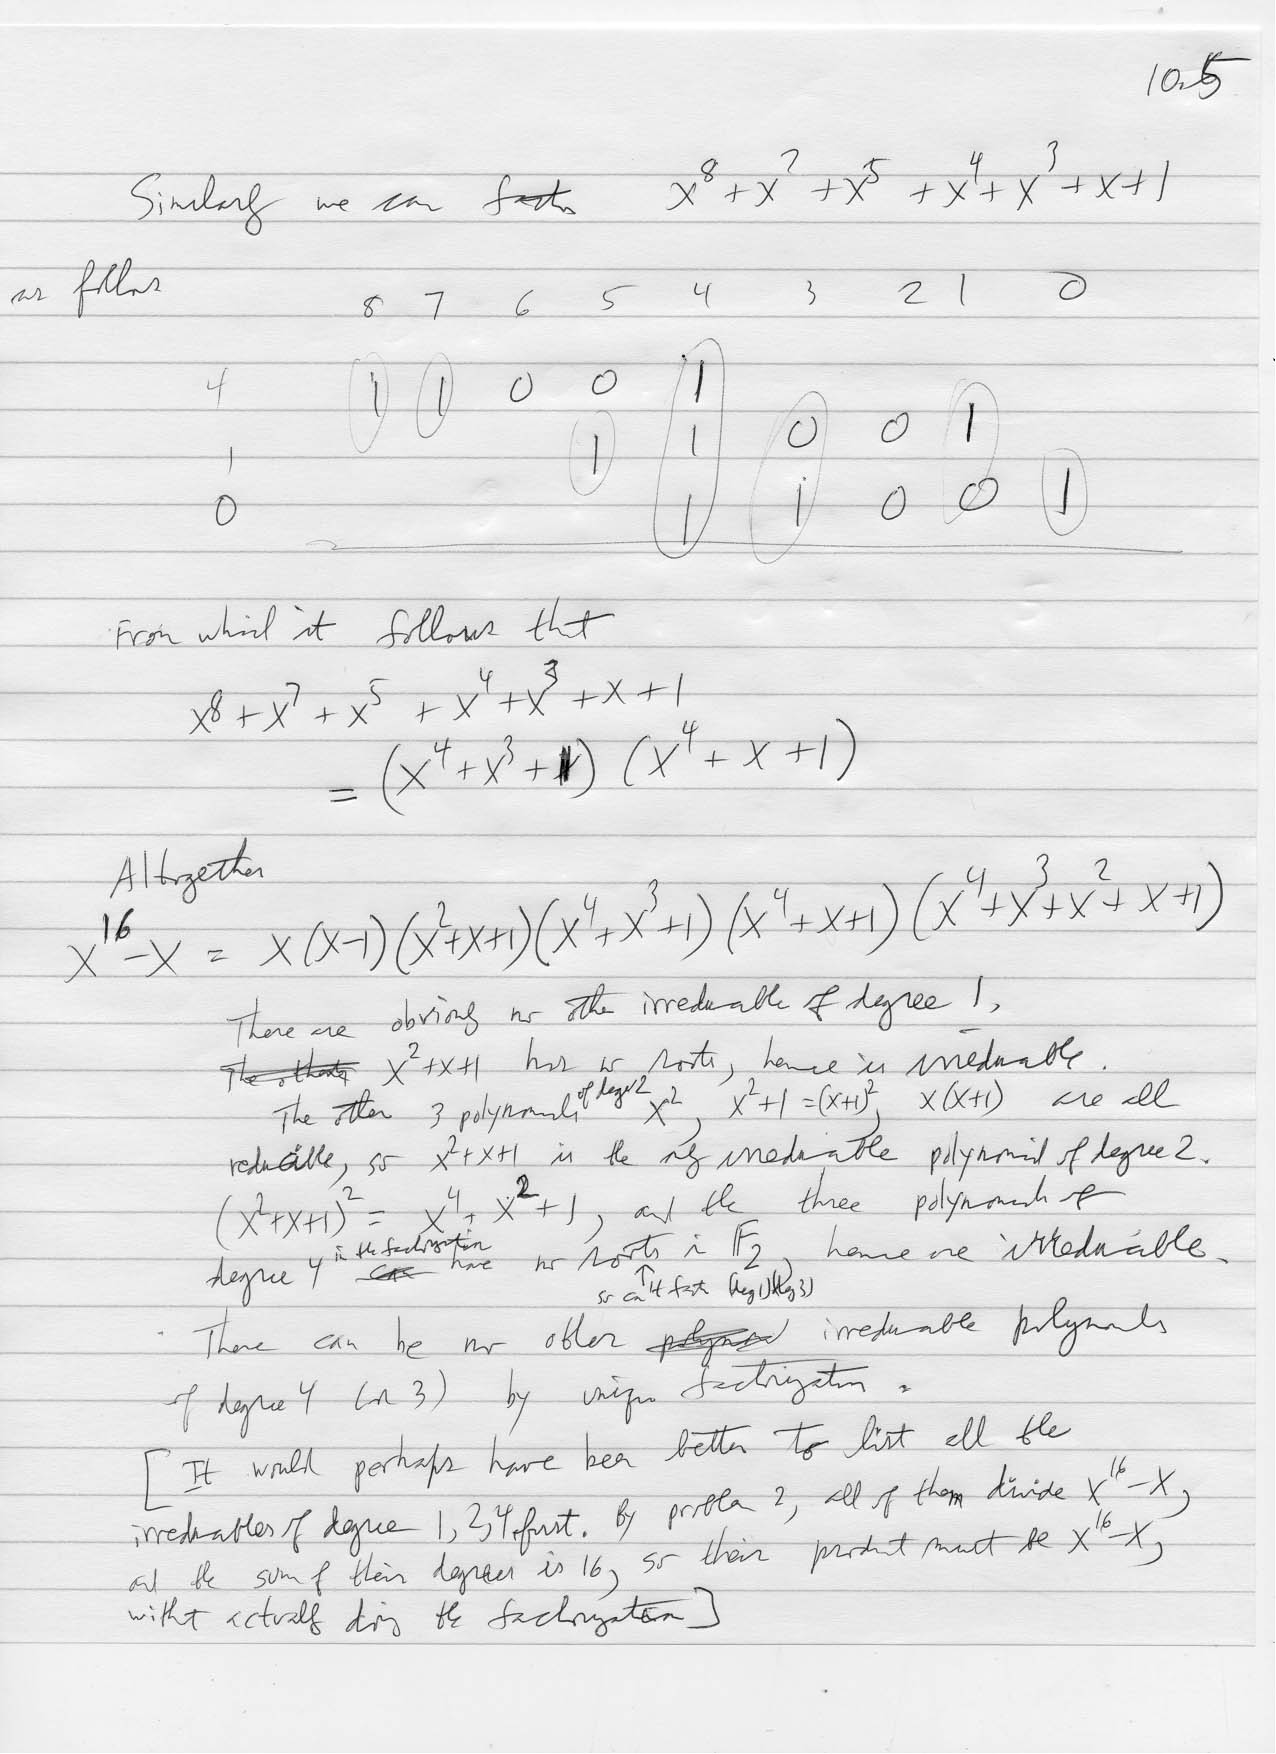 10.5
Similarly we can factor x⁸ + x⁷ + x⁵ + x⁴ + x³ + x + 1
as follows
8 7 6 5 4 3 2 1 0
4 1 1 0 0 1
1 1 1 0 0 1
0 1 1 0 0 1
From which it follows that
x⁸ + x⁷ + x⁵ + x⁴ + x³ + x + 1
= (x⁴ + x³ + 1) (x⁴ + x + 1)
Altogether
x¹⁶ - x = x(x-1)(x²+x+1)(x⁴+x³+1)(x⁴+x+1)(x⁴+x³+x²+x+1)
There are obviously no other irreducible of degree 1,
x²+x+1 has no roots, hence is irreducible.
The other 3 polynomials of degree 2 x², x²+1 = (x+1)², x(x+1) are all
reducible, so x²+x+1 is the only irreducible polynomial of degree 2.
(x²+x+1)² = x⁴ + x² + 1, and the three polynomials of
degree 4 in the factorization have no roots in F₂, hence are irreducible.
↑ so can't factor (deg 1)(deg 3)
There can be no other irreducible polynomials
of degree 4 (or 3) by unique factorization.
[It would perhaps have been better to list all the
irreducibles of degree 1, 2, 4 first. By problem 2, all of them divide x¹⁶ - x,
and the sum of their degrees is 16, so their product must be x¹⁶ - x,
without actually doing the factorization]